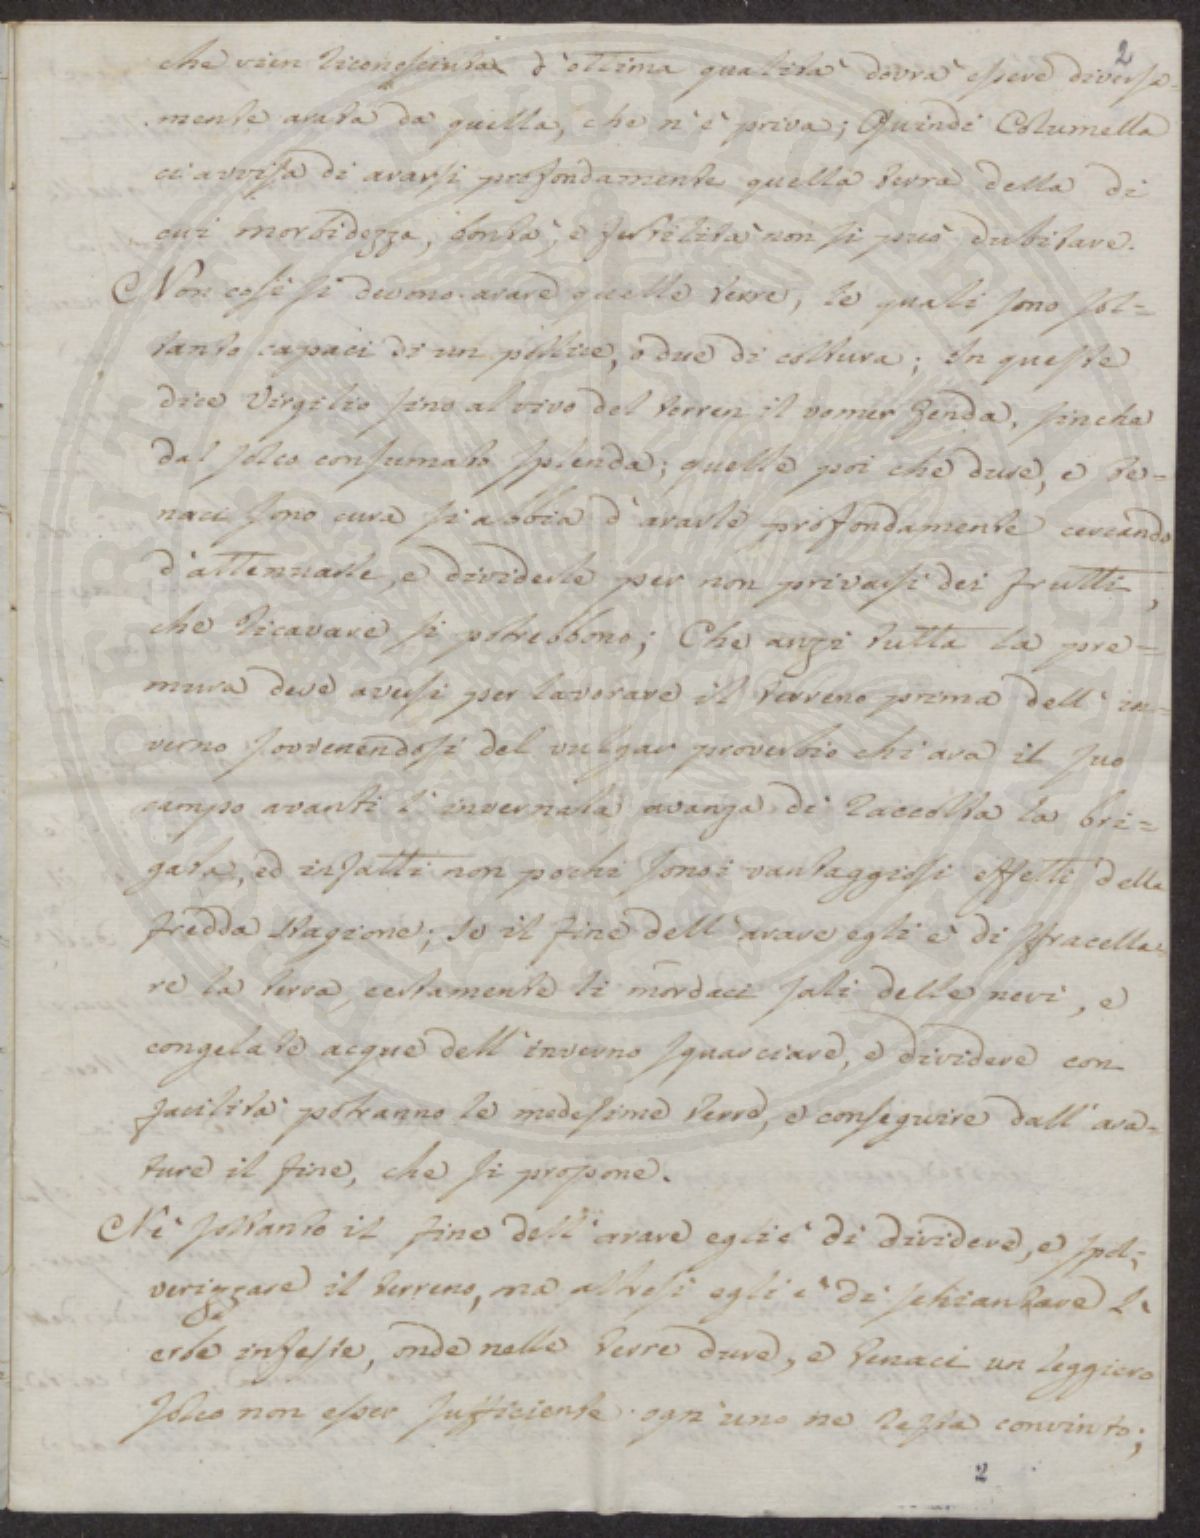 2
che vien riconosciuta d'ottima qualità dovrà essere diversa-
mente arata da quella, che n'è priva; Quindi Columella
ci avvisa di ararsi profondamente quella terra della di
cui morbidezza, bontà, e fertilità non si può dubitare.
Non così si devono arare quelle terre, le quali sono sol=
tanto capaci di un pollice, o due di coltura; in queste
dice Virgilio sino al vivo del terren il vomer fenda, finche
dal solco consumato splenda; quelle poi che dure, e te=
naci sono cura si abbia d'ararle profondamente cercando
d'attenuarle, e dividerle per non privarsi dei frutti,
che ricavare si potrebbono; Che anzi tutta la pre=
mura deve aversi per lavorare il terreno prima dell'in=
verno sovvenendosi del vulgar proverbio chi ara il suo
campo avanti l'invernata avanza di raccolta la bri=
gata, ed infatti non pochi sono i vantaggiosi effetti della
fredda stagione; se il fine dell'arare egli è di sfracella=
re la terra, certamente li mordaci sali delle nevi, e
congelate acque dell'inverno squarciare, e dividere con
facilità potranno le medesime terre, e conseguire dall'ara=
ture il fine, che si propone.
Nè soltanto il fine dell'arare egli è di dividere, e spol=
verizzare il terreno, ma altresì egli è di schiantare l'
erbe infeste, onde nelle terre dure, e tenaci un leggiero
solco non esser sufficiente ogn'uno ne resta convinto;
2